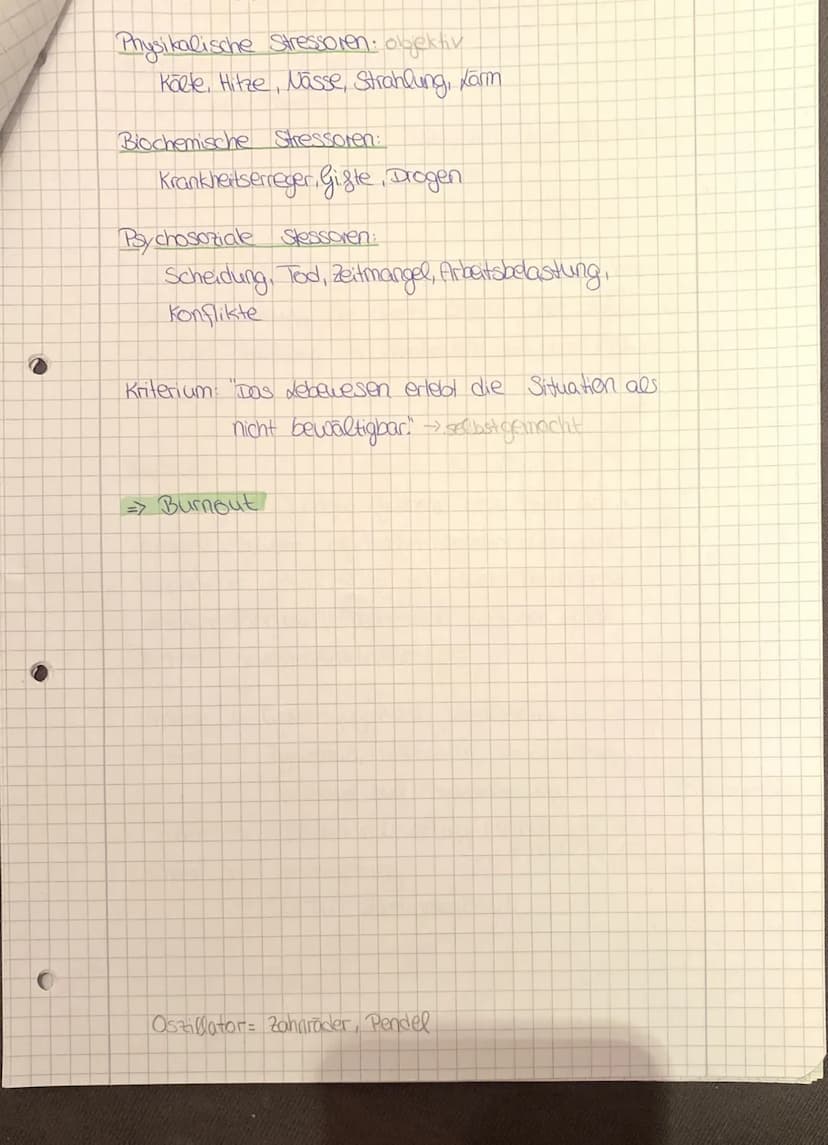 Physikalische Stressoren: objektiv
Kälte, Hitze, Nässe, Strahlung, Lärm
Biochemische Stressoren:
Krankheitserreger, Gifte, Drogen
Psychosoziale Stessoren:
Scheidung, Tod, Zeitmangel, Arbeitsbelastung,
Konflikte
Kriterium: "Das Lebewesen erlebt die Situation als
nicht bewältigbar." → selbstgemacht
=> Burnout
Oszillator = Zahnräder, Pendel